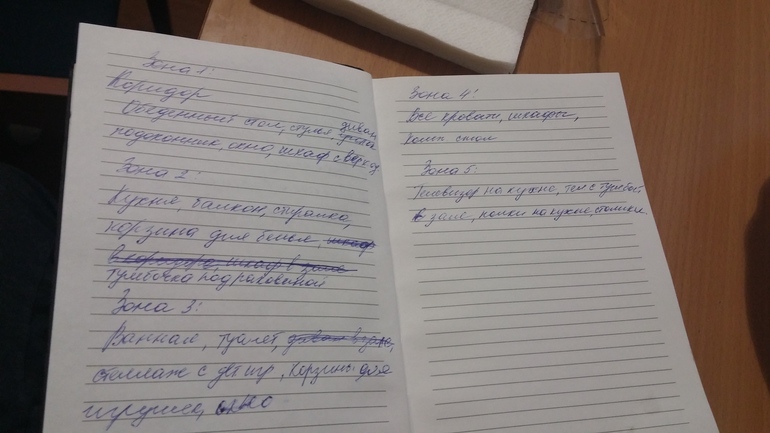 Зона 1:
Коридор
Обеденный стол, стулья диван
подоконник, окно, шкаф сверху
Зона 2:
Кухня, балкон, стиралка,
корзина для белья, шкаф
в коридоре, шкаф в зале
тумбочка под раковиной
Зона 3:
Ванная, туалет, диван в зале,
стеллаж с дет игр, корзины для
игрушек, окно
Зона 4:
Все кровати, шкафы,
комп стол
Зона 5:
Телевизор на кухне, тел с тумбой
в зале, полки на кухне, столик.